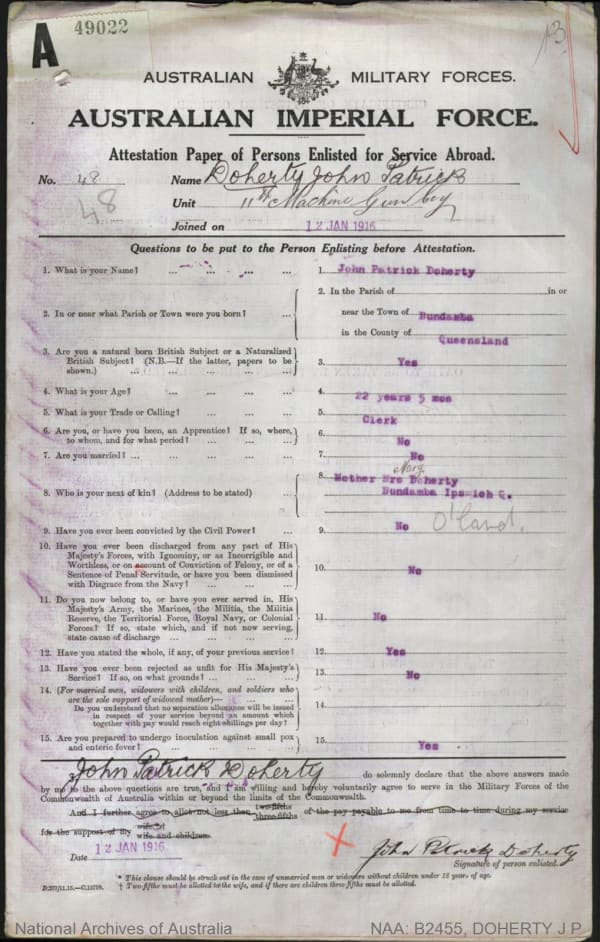 A 49022
13
AUSTRALIAN MILITARY FORCES.
AUSTRALIAN IMPERIAL FORCE.
Attestation Paper of Persons Enlisted for Service Abroad.
No. 48 Name Doherty John Patrick
48 Unit 11th Machine Gun Coy
Joined on 12 JAN 1916
Questions to be put to the Person Enlisting before Attestation.
1. What is your Name? ... ... ... ... 1. John Patrick Doherty
2. In or near what Parish or Town were you born? ... 2. In the Parish of in or
near the Town of Bundamba
in the County of Queensland
3. Are you a natural born British Subject or a Naturalized
British Subject? (N.B.—If the latter, papers to be
shown.) ... ... ... ... ... 3. Yes
4. What is your Age? ... ... ... ... 4. 22 years 5 mos
5. What is your Trade or Calling? ... ... ... 5. Clerk
6. Are you, or have you been, an Apprentice? If so, where,
to whom, and for what period? ... ... ... 6. No
7. Are you married? ... ... ... ... ... 7. No
8. Who is your next of kin? (Address to be stated) ... 8. Mother Mrs Mary Doherty
Bundamba Ipswich Q.
Q'land.
9. Have you ever been convicted by the Civil Power? ... 9. No
10. Have you ever been discharged from any part of His
Majesty's Forces, with Ignominy, or as Incorrigible and
Worthless, or on account of Conviction of Felony, or of a
Sentence of Penal Servitude, or have you been dismissed
with Disgrace from the Navy? ... ... ... 10. No
11. Do you now belong to, or have you ever served in, His
Majesty's Army, the Marines, the Militia, the Militia
Reserve, the Territorial Force, Royal Navy, or Colonial
Forces? If so, state which, and if not now serving,
state cause of discharge ... ... ... ... 11. No
12. Have you stated the whole, if any, of your previous service? 12. Yes
13. Have you ever been rejected as unfit for His Majesty's
Service? If so, on what grounds? ... ... ... 13. No
14. (For married men, widowers with children, and soldiers who
are the sole support of widowed mother)—
Do you understand that no separation allowance will be issued
in respect of your service beyond an amount which
together with pay would reach eight shillings per day? 14.
15. Are you prepared to undergo inoculation against small pox
and enteric fever? ... ... ... ... 15. Yes
John Patrick Doherty do solemnly declare that the above answers made
by me to the above questions are true, and I am willing and hereby voluntarily agree to serve in the Military Forces of the
Commonwealth of Australia within or beyond the limits of the Commonwealth.
And I further agree to allot not less than two-fifths three-fifths of the pay payable to me from time to time during my service
for the support of my wife wife and children.
Date 12 JAN 1916
John Patrick Doherty
Signature of person enlisted.
* This clause should be struck out in the case of unmarried men or widowers without children under 18 years of age.
† Two-fifths must be allotted to the wife, and if there are children three-fifths must be allotted.
National Archives of Australia NAA: B2455, DOHERTY J P